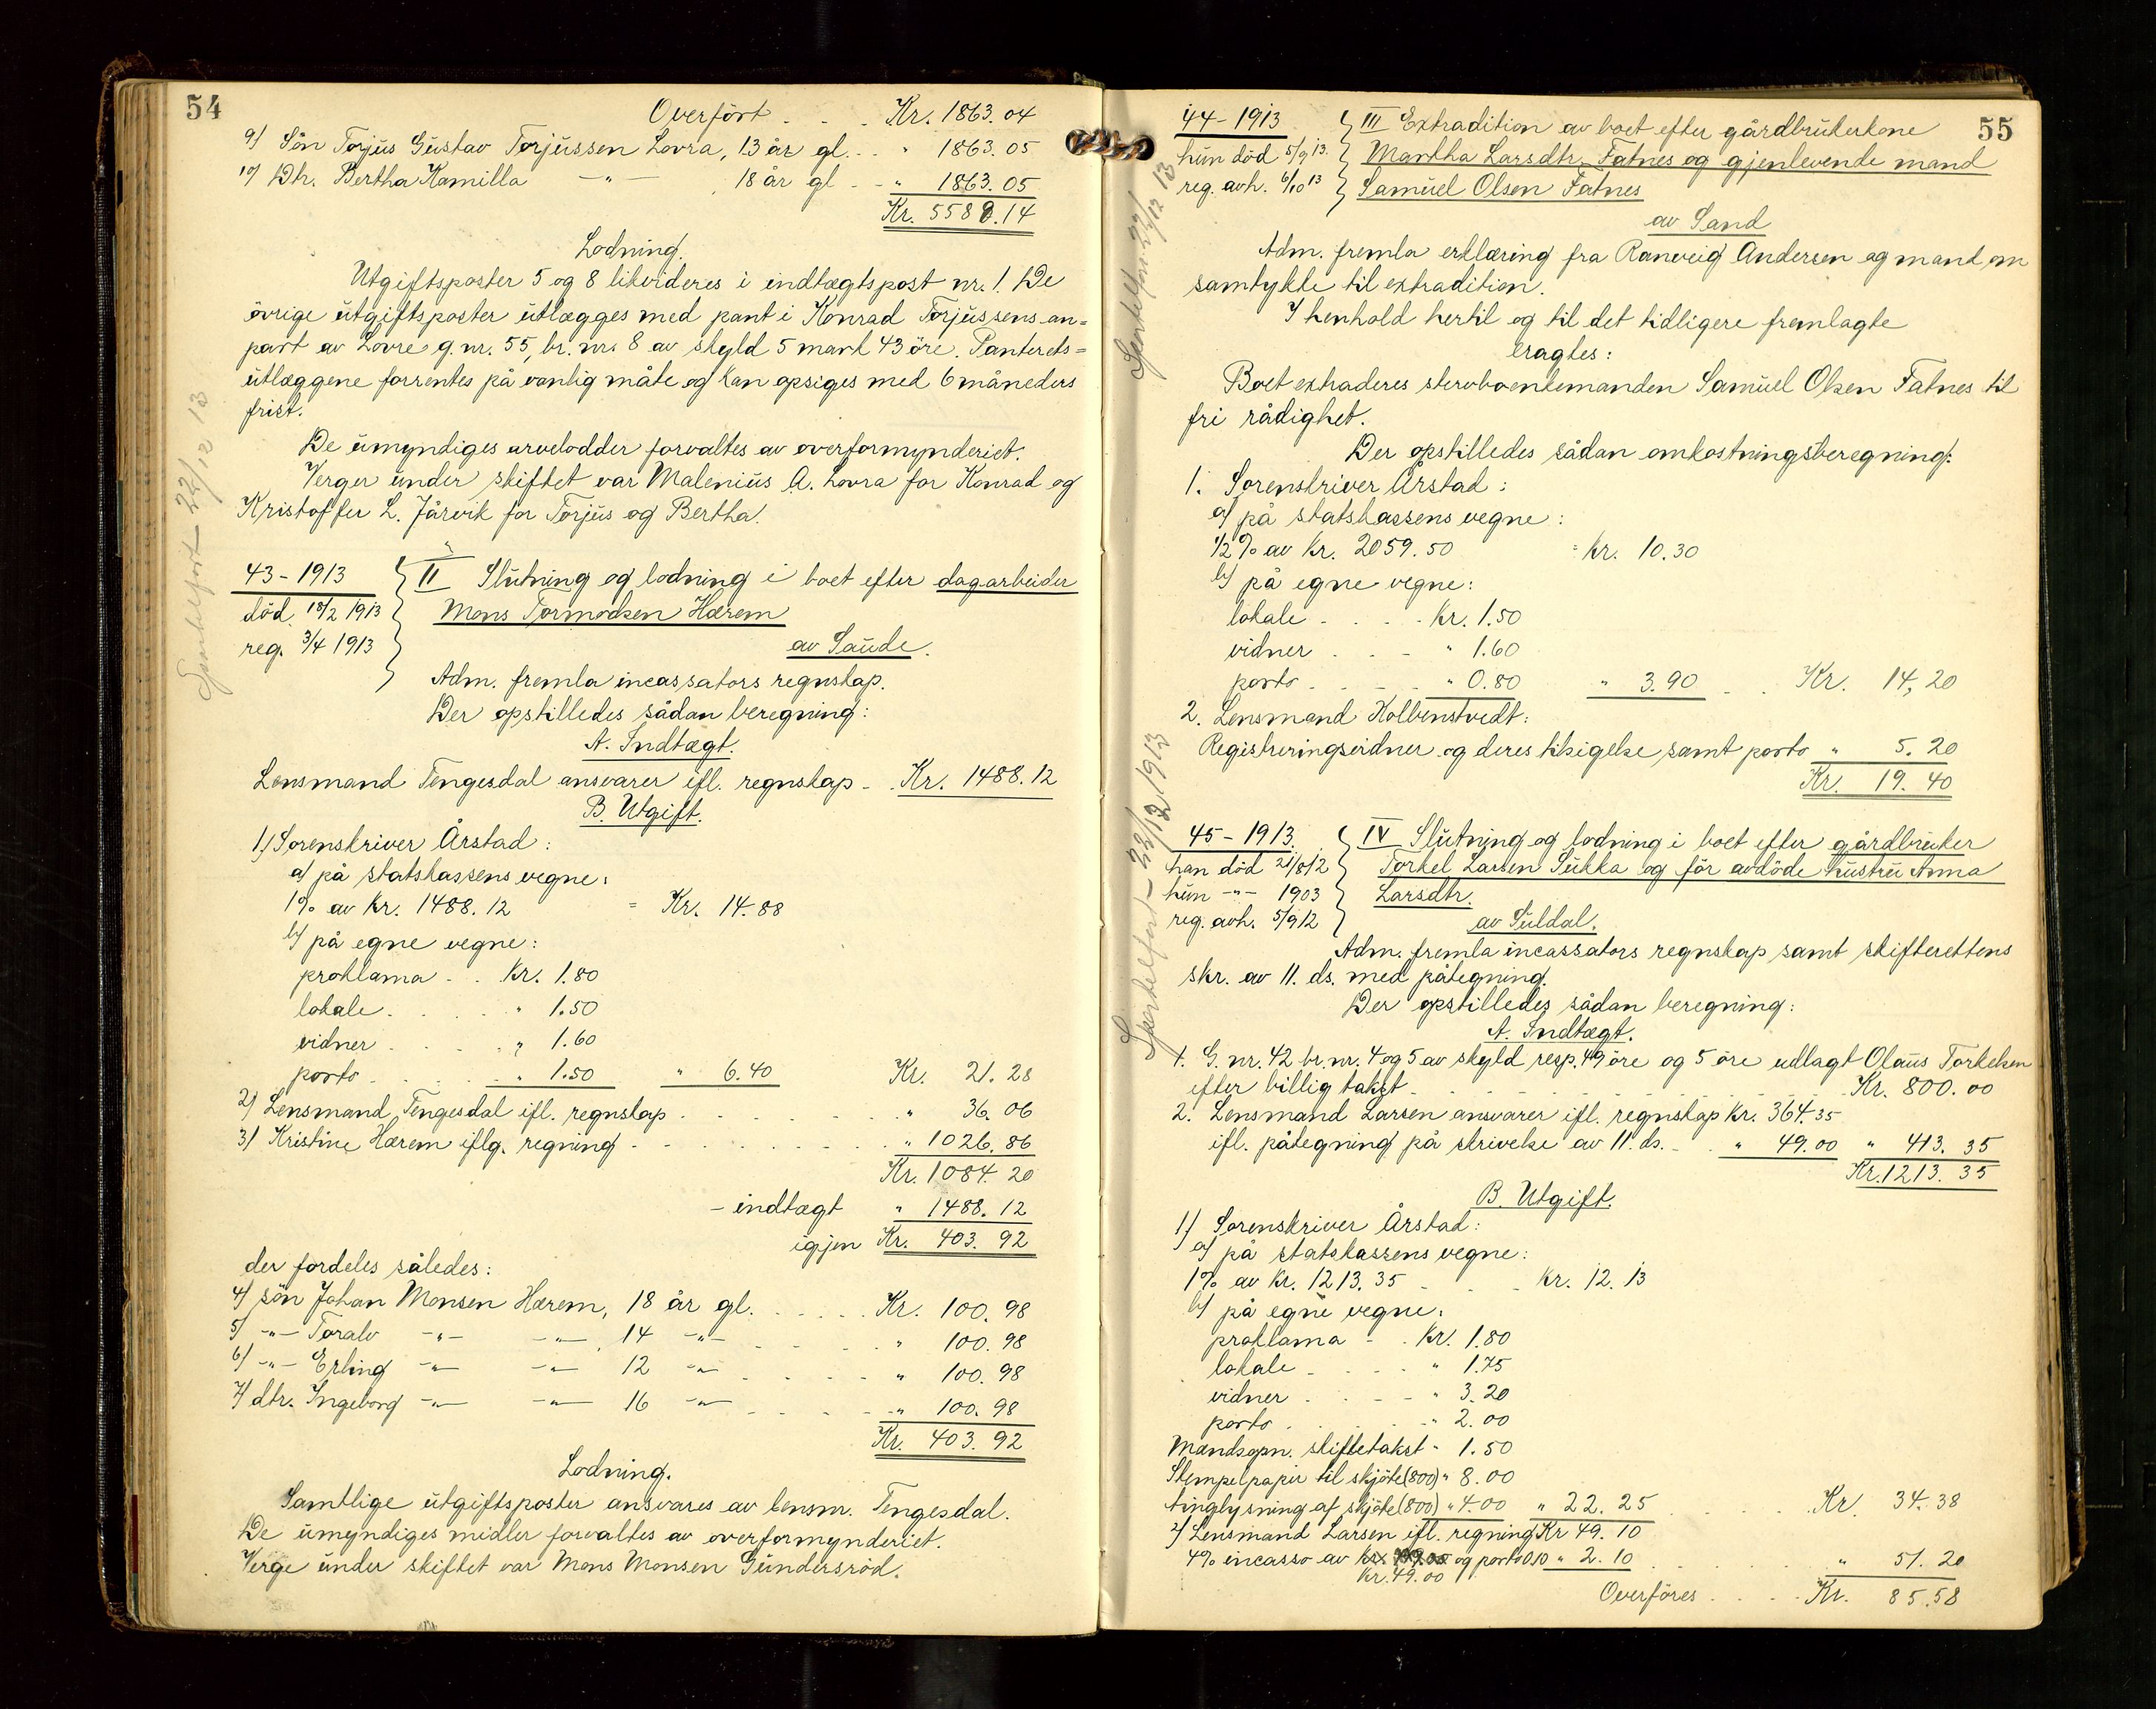 54
Overført . . . Kr. 1863.04
9) Sön Torjüs Güstav Torjüssen Lovra, 13 år gl. . . " 1863.05
10) Dtr. Bertha Kamilla -"- 18 år gl - - " 1863.05
Kr. 5589.14
Lodning.
Utgiftsposter 5 og 8 likvideres i indtægtspost nr. 1. De
övrige ütgiftsposter ütlægges med pant i Konrad Torjüssens an=
part av Lovre g.nr. 55, br. nr. 8 av skyld 5 mark 43 öre. Panterets=
ütlæggene forrentes på vanlig måte og kan opsiges med 6 måneders
frist.
De ümyndiges arvelodder forvaltes av overformynderiet.
Verger ünder skiftet var Maleniüs A. Lovra for Konrad og
Kristoffer L. Järvik for Torjüs og Bertha.
Sportelført 22/12 13
43 - 1913
död 18/2 1913
reg. 3/4 1913
II Slütning og lodning i boet efter dagarbeider
Mons Tormodsen Hærem
av Saüde.
Adm. fremla incassators regnskap.
Der opstilledes sådan beregning:
A. Indtægt.
Lensmand Tengesdal ansvarer ifl. regnskap - . Kr. 1488.12
B. Utgift.
1) Sorenskriver Årstad:
a) på statskassens vegne:
1% av kr. 1488.12 = Kr. 14.88
b) på egne vegne:
proklama - . . Kr. 1.80
lokale . . . . " 1.50
vidner . . . " 1.60
porto . . . . " 1.50 " 6.40 Kr. 21.28
2) Lensmand Tengesdal ifl. regnskap . . . . . " 36.06
3) Kristine Hærem iflg. regning . . . . . " 1026.86
Kr. 1084.20
- indtægt " 1488.12
igjen Kr. 403.92
der fordeles således:
4) sön Johan Monsen Hærem, 18 år gl. . . . . Kr. 100.98
5) -"- Toralv -"- -"- , 14 -"- . . . " 100.98
6) -"- Erling -"- -"- 12 -"- . . . " 100.98
7) dtr. Ingeborg -"- -"- 16 -"- . . . " 100.98
Kr. 403.92
Lodning.
Samtlige ütgiftsposter ansvares av lensm. Tengesdal.
De ümyndiges midler forvaltes av overformynderiet.
Verge ünder skiftet var Mons Monsen Gündersröd.
55
44 - 1913
hün död 5/9 13.
reg. avh. 6/10 13
III Extradition av boet efter gårdbrükerkone
Martha Larsdtr. Fatnes og gjenlevende mand
Samüel Olsen Fatnes
av Sand
Sportelført 22/12 13
Adm. fremla erklæring fra Ranveig Andersen og mand om
samtykke til extradition.
I henhold hertil og til det tidligere fremlagte
eragtes:
Boet extraderes stervboenkemanden Samüel Olsen Fatnes til
fri rådighet.
Der opstilledes sådan omkostningsberegning:
1. Sorenskriver Årstad:
a) på statskassens vegne:
1/2% av kr. 2059.50 = kr. 10.30
b) på egne vegne:
lokale . . . . Kr. 1.50
vidner . . - " 1.60
porto . . . . " 0.80 " 3.90 . . Kr. 14,20
2. Lensmand Kolbenstvedt:
Registreringsvidner og deres tilsigelse samt porto " 5.20
Kr. 19.40
Sportelført - 22/12 1913
45 - 1913.
han död 21/8 12
hün -"- 1903
reg. avh. 5/9 12
IV Slütning og lodning i boet efter gårdbrüker
Torkel Larsen Sükka og för avdöde hüstrü Anna
Larsdtr.
av Süldal.
Adm. fremla incassators regnskap samt skifterettens
skr. av 11. ds. med påtegning.
Der opstilledes sådan beregning:
A. Indtægt.
1. G. nr. 42 br. nr. 4 og 5 av skyld resp. 49 öre og 5 öre udlagt Olaüs Torkelsen
efter billig takst . . . . . . Kr. 800.00
2. Lensmand Larsen ansvarer ifl. regnskap Kr. 364.35
ifl. påtegning på skrivelse av 11. ds. - . " 49.00 " 413.35
Kr. 1213.35
B. Utgift.
1) Sorenskriver Årstad:
a) på statskassens vegne:
1% av kr. 1213.35 . . . kr. 12.13
b) på egne vegne:
proklama - . Kr. 1.80
lokale - . . . " 1.75
vidner . . . - " 3.20
porto . . . . " 2.00
Mandsopn. skiftetakst " 1.50
Stempelpapir til skjöte (800) " 8.00
tinglysning af skjöte (800) " 4.00 " 22.25 . . . . Kr. 34.38
2) Lensmand Larsen ifl. regning Kr 49.10
4% incasso av kr. 49.00 og porto 0.10 " 2.10 . . . . " 51.20
Overføres . . . . Kr. 85.58